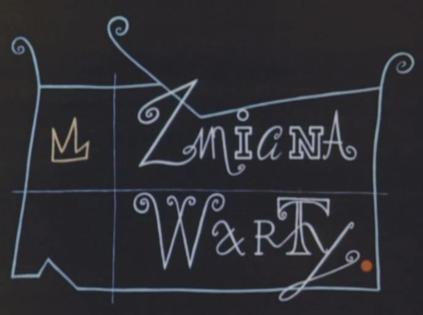 Zmiana
Warty